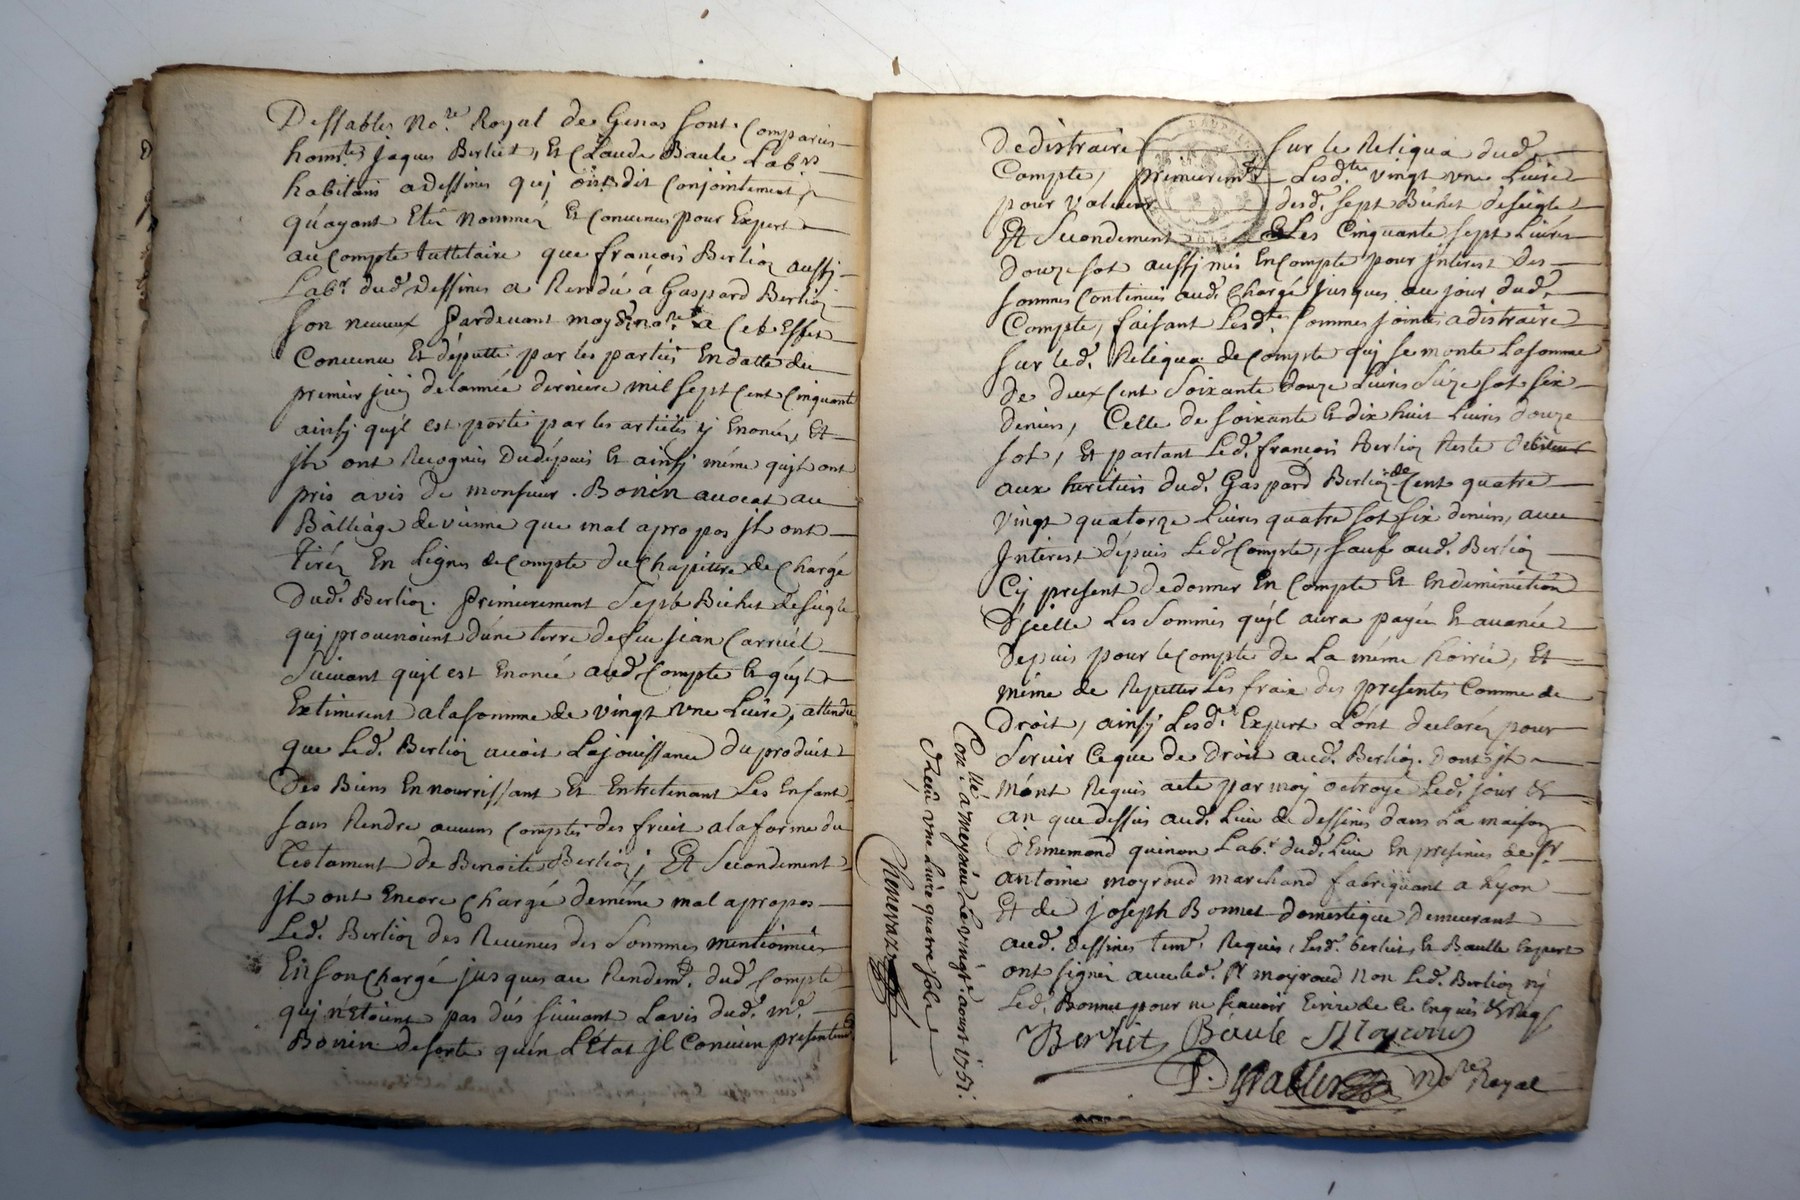 Dessables No.re Royal de Genas sont Comparus
honntes Jaques Berliet, Et Claude Baule Labrs
habitans adessines quj ont dit Conjointement
qu'ayant Eté nommés Et Convenus pour Expert
au Compte tuttelaire que françois Berlioz aussj
Labr. dud. Dessines a Rendu á Gaspard Berlioz
son neveux Pardevant moyd. no.re a Cet Effet
Convenu Et députté par les parties En datte du
premier juin delannée derniere mil sept Cent Cinquante
ainsj qu'jl est porté par les articles ÿ Enoncés, Et
jls ont Recognus Dudépuis Et ainsj méme qu'jls ont
pris avis de monsieur Bonin avocat au
Bálliage de vienne que mal apropos jls ont
tirés En lignes de Compte du Chapittre de Chargé
Dud. Berlioz. Primierement Sept Bichet de seigle
quj provenoient d'une terre de feu jean Carruel
Suivant qu'jl est Enoncé aud. Compte Et qu'jls
Extimerent alasomme de vingt vne Livre, attendu
que Led. Berlioz avoit La jouissance du produit
Des Biens En nourrissant Et Entretenant Les Enfant
sans Rendre aucuns Comptes des fruit ala forme du
Testament de Benoite Berlioz; Et Secondement
jls ont Encore Chargé deméme mal apropos
Led. Berlioz des Revenus des Sommes mentionnées
En son Chargé jusques au Rendemt. dud. Compte
quj n'Etoient pas dús suivant Lavis dud. mr.
Bonin desorte qu'en L'Etat jl Convien présentemt
De distraire sur le Reliqua dud.
Compte, primieremt. Lesd.tes vingt vne Livre
pour valeur desd. sept Bichet deseigle
Et Secondement Les Cinquante sept Livres
douze sol aussj mis En Compte pour jnterest des
sommes Continues aud. Chargé jusques au jour dud.
Compte, faisant Lesd.tes sommes jointes adistraire
sur led. Reliqua de Compte quj se monte Lasomme
de deux Cent Soixante douze Livres Séze sol six
deniers, Celle de soixante Et dix huit Livres douze
sol, Et partant Led. françois Berlioz Reste debiteur
aux heritiers dud. Gaspard Berlioz de Cent quatre
vingt quatorze Livres quatre sol six deniers, avec
Jnterest dépuis Led. Compte, sauf aud. Berlioz
Cÿ present de donner En Compte Et En diminution
D'jcelle Les Sommes qu'jl aura payée Et avancée
depuis pour le Compte de La méme hoirie, Et
méme de Reputter Les frais des presentes Comme de
Droit, ainsj Lesd. Expert L'ont declarés pour
Servir Ceque de Droit aud. Berlioz. Dont jls
m'ont Requis acte par moy octroyé Led. jour Et
an que dessus aud. Lieu de dessines dans La maison
d'Ennemond quinon Labr. dud. Lieu En presences de Sr.
antoine moyroud marchand fabriquant a Lyon
Et de joseph Bonnet domestique demeurant
aud. dessines tem. Requis, Lesd. berliet, Et Baulle Expert
ont signés avec led. Sr. moyroud non Led. Berlioz nÿ
Led. Bonnet pour ne sçavoir Ecrire de ce Enquis & Req.
Berliet Baule Moyroud
Dessables No.re Royal
Con.llé a meyzieu Le vingt. aout 1751.
Receu vne Livre quatre sols
Thenevaz